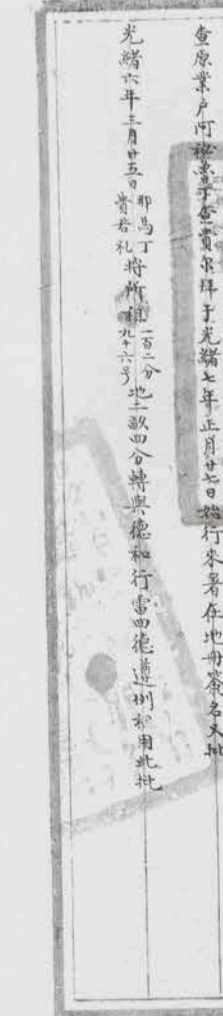 查原業戶阿秘雷丁查賚尔拜于光緒七年正月廿七日始行來署在地冊簽名又批
光緒六年三月廿五日耶馬丁賚若礼將所租一百二分九十六号地二畝四分轉與德和行雷四德遵例租用此批